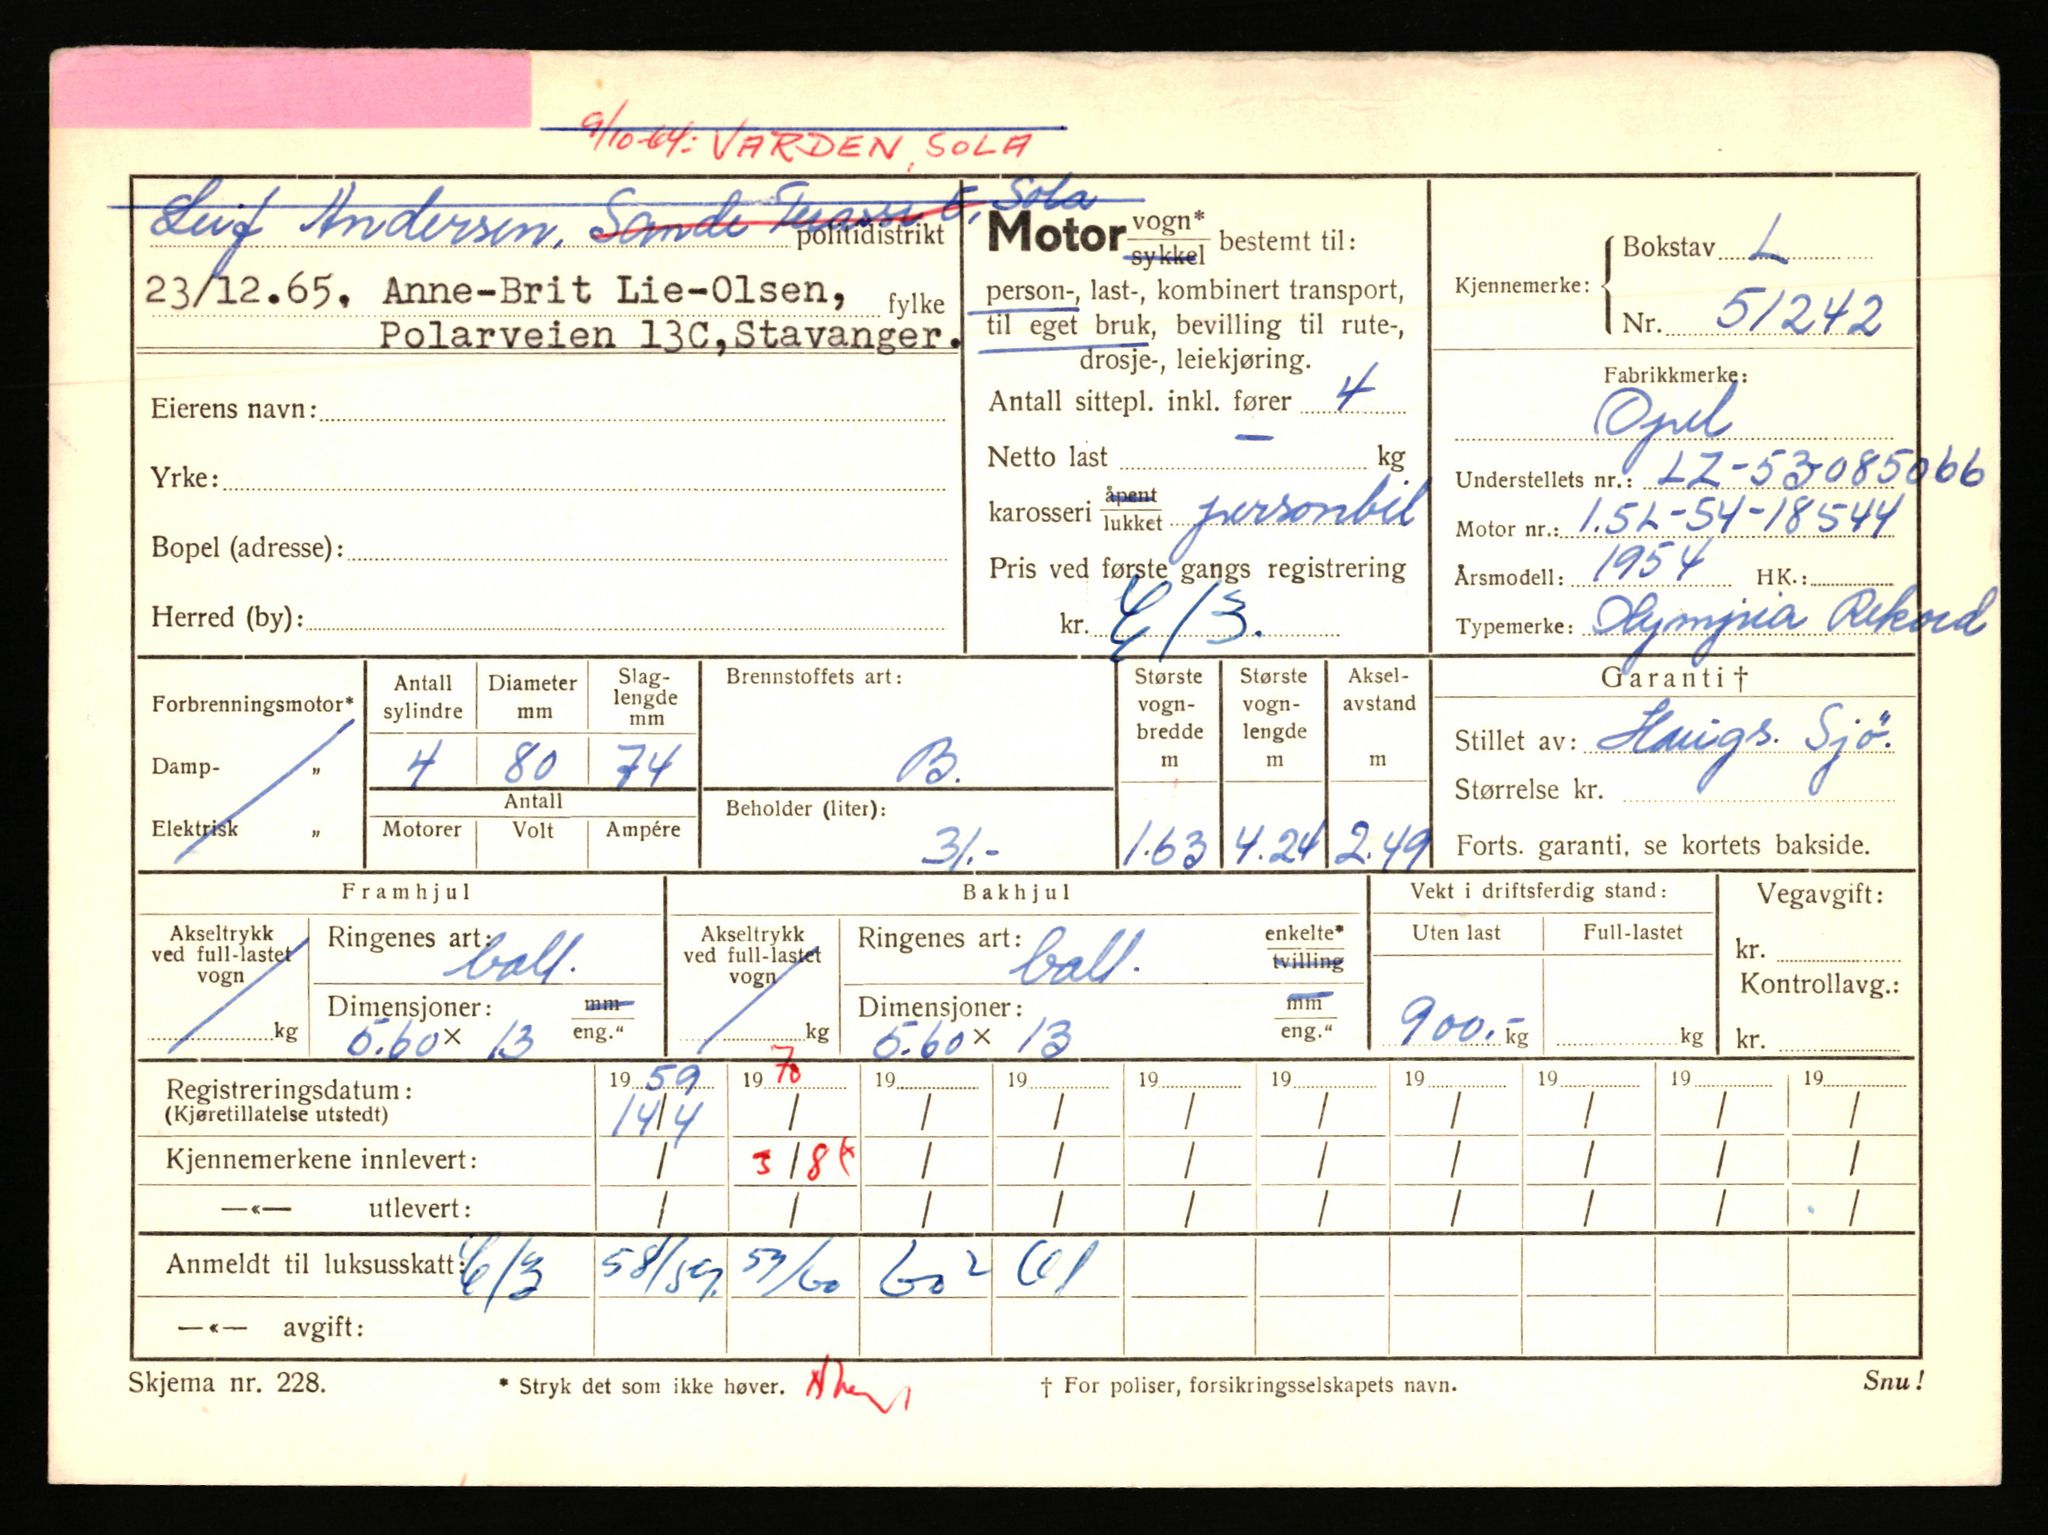 9/10-64: VARDEN, SOLA
Leif Andersen, Sande Terasse 5, Sola
politidistrikt
23/12.65. Anne-Brit Lie-Olsen, fylke
Polarveien 13C, Stavanger.
Eierens navn:
Yrke:
Bopel (adresse):
Herred (by):
Motor vogn* sykkel bestemt til:
person-, last-, kombinert transport,
til eget bruk, bevilling til rute-,
drosje-, leiekjøring.
Antall sittepl. inkl. fører 4
Netto last — kg
karosseri åpent lukket personbil
Pris ved første gangs registrering
kr. E/3.
Kjennemerke: Bokstav L
Nr. 51242
Fabrikkmerke:
Opel
Understellets nr.: LZ-53-085066
Motor nr.: 1.5L-54-18544
Årsmodell: 1954 HK.:
Typemerke: Olympia Rekord
Forbrenningsmotor*
Damp- „
Elektrisk „
Antall sylindre 4
Diameter mm 80
Slag-lengde mm 74
Antall
Motorer Volt Ampére
Brennstoffets art:
B.
Beholder (liter):
31.-
Største vogn-bredde m 1.63
Største vogn-lengde m 4.24
Aksel-avstand m 2.49
Garanti †
Stillet av: Haugs. Sjø.
Størrelse kr.
Forts. garanti, se kortets bakside.
Framhjul
Akseltrykk ved full-lastet vogn kg
Ringenes art: ball.
Dimensjoner: mm eng.“
5.60 × 13
Bakhjul
Akseltrykk ved full-lastet vogn kg
Ringenes art: ball. enkelte* tvilling
Dimensjoner: mm eng.“
5.60 × 13
Vekt i driftsferdig stand:
Uten last Full-lastet
900.- kg kg
Vegavgift:
kr.
Kontrollavg.:
kr.
Registreringsdatum: 19 59 19 70 19 19 19 19 19 19 19 19
(Kjøretillatelse utstedt) 14/4 / / / / / / / / /
Kjennemerkene innlevert: / 3/8 / / / / / / / /
—«— utlevert: / / / / / / / / / /
Anmeldt til luksusskatt: E/3 58/59. 59/60 60² 61
—«— avgift:
Skjema nr. 228. * Stryk det som ikke høver. † For poliser, forsikringsselskapets navn. Snu!